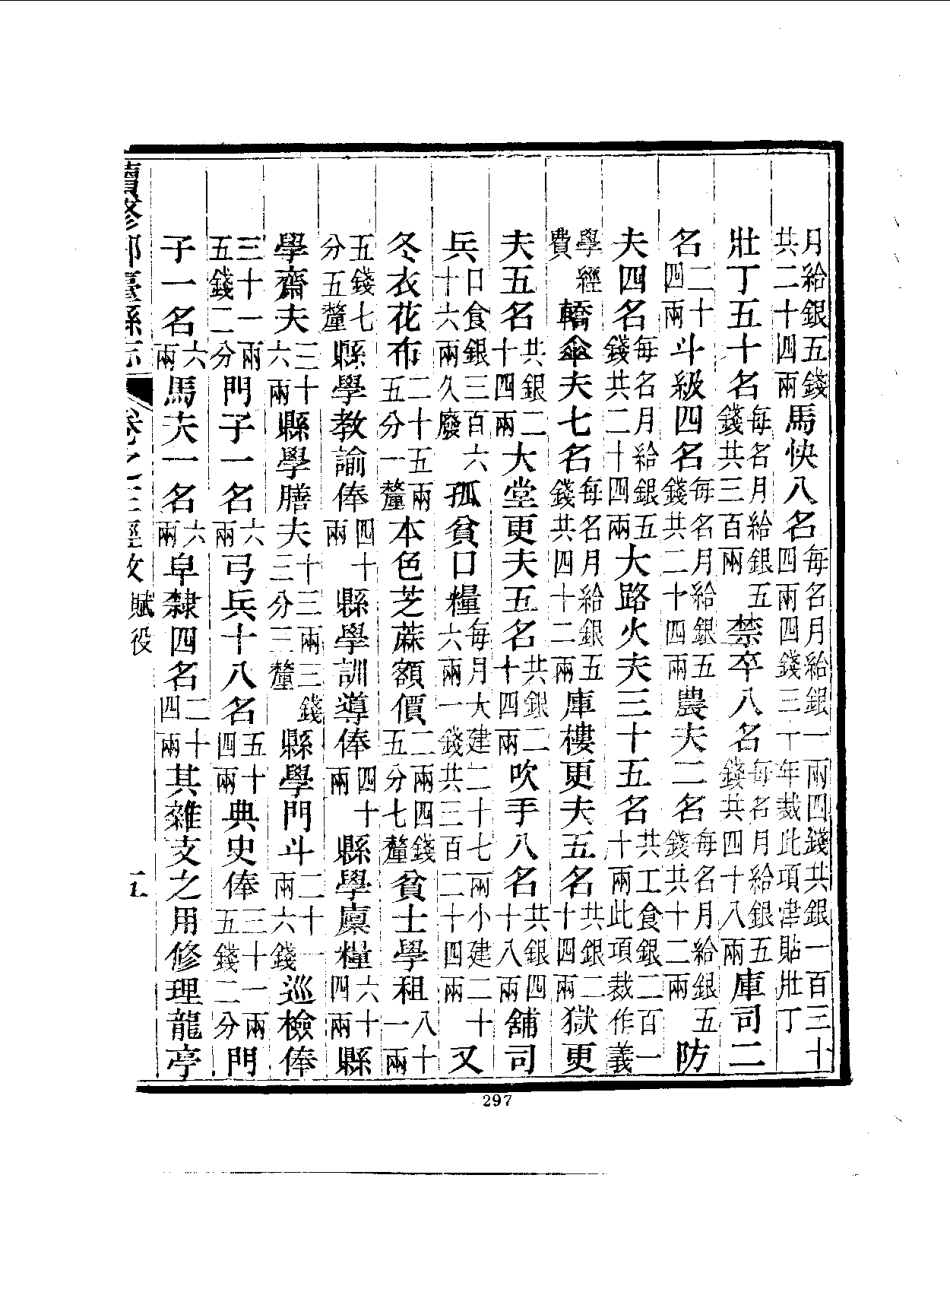 月給銀五錢共二十四兩馬快八名每名月給銀一兩四錢共銀一百三十四兩四錢三十年裁此項津貼壯丁
壯丁五十名每名月給銀五錢共三百兩禁卒八名每名月給銀五錢共四十八兩庫司二
名二十四兩斗級四名每名月給銀五錢共二十四兩農夫二名每名月給銀五錢共十二兩防
夫四名每名月給銀五錢共二十四兩大路火夫三十五名共工食銀二百一十兩此項裁作義
學經費轎傘夫七名每名月給銀五錢共四十二兩庫樓更夫五名共銀二十四兩獄更
夫五名共銀二十四兩大堂更夫五名共銀二十四兩吹手八名共銀四十八兩舖司
兵口食銀三百六十六兩久廢孤貧口糧每月大建二十七兩小建二十六兩一錢共三百二十四兩又
冬衣花布二十五兩五分一釐本色芝蔴額價二兩四錢五分七釐貧士學租八十一兩
五錢七分五釐縣學教諭俸四十兩縣學訓導俸四十兩縣學廩糧六十四兩縣
學齋夫三十六兩縣學膳夫十三兩三錢三分三釐縣學門斗二十一兩六錢巡檢俸
三十一兩五錢二分門子一名六兩弓兵十八名五十四兩典史俸三十一兩五錢二分門
子一名六兩馬夫一名六兩皁隸四名二十四兩其雜支之用修理龍亭
續修邢臺縣志 卷之三 經政 賦役 五
297